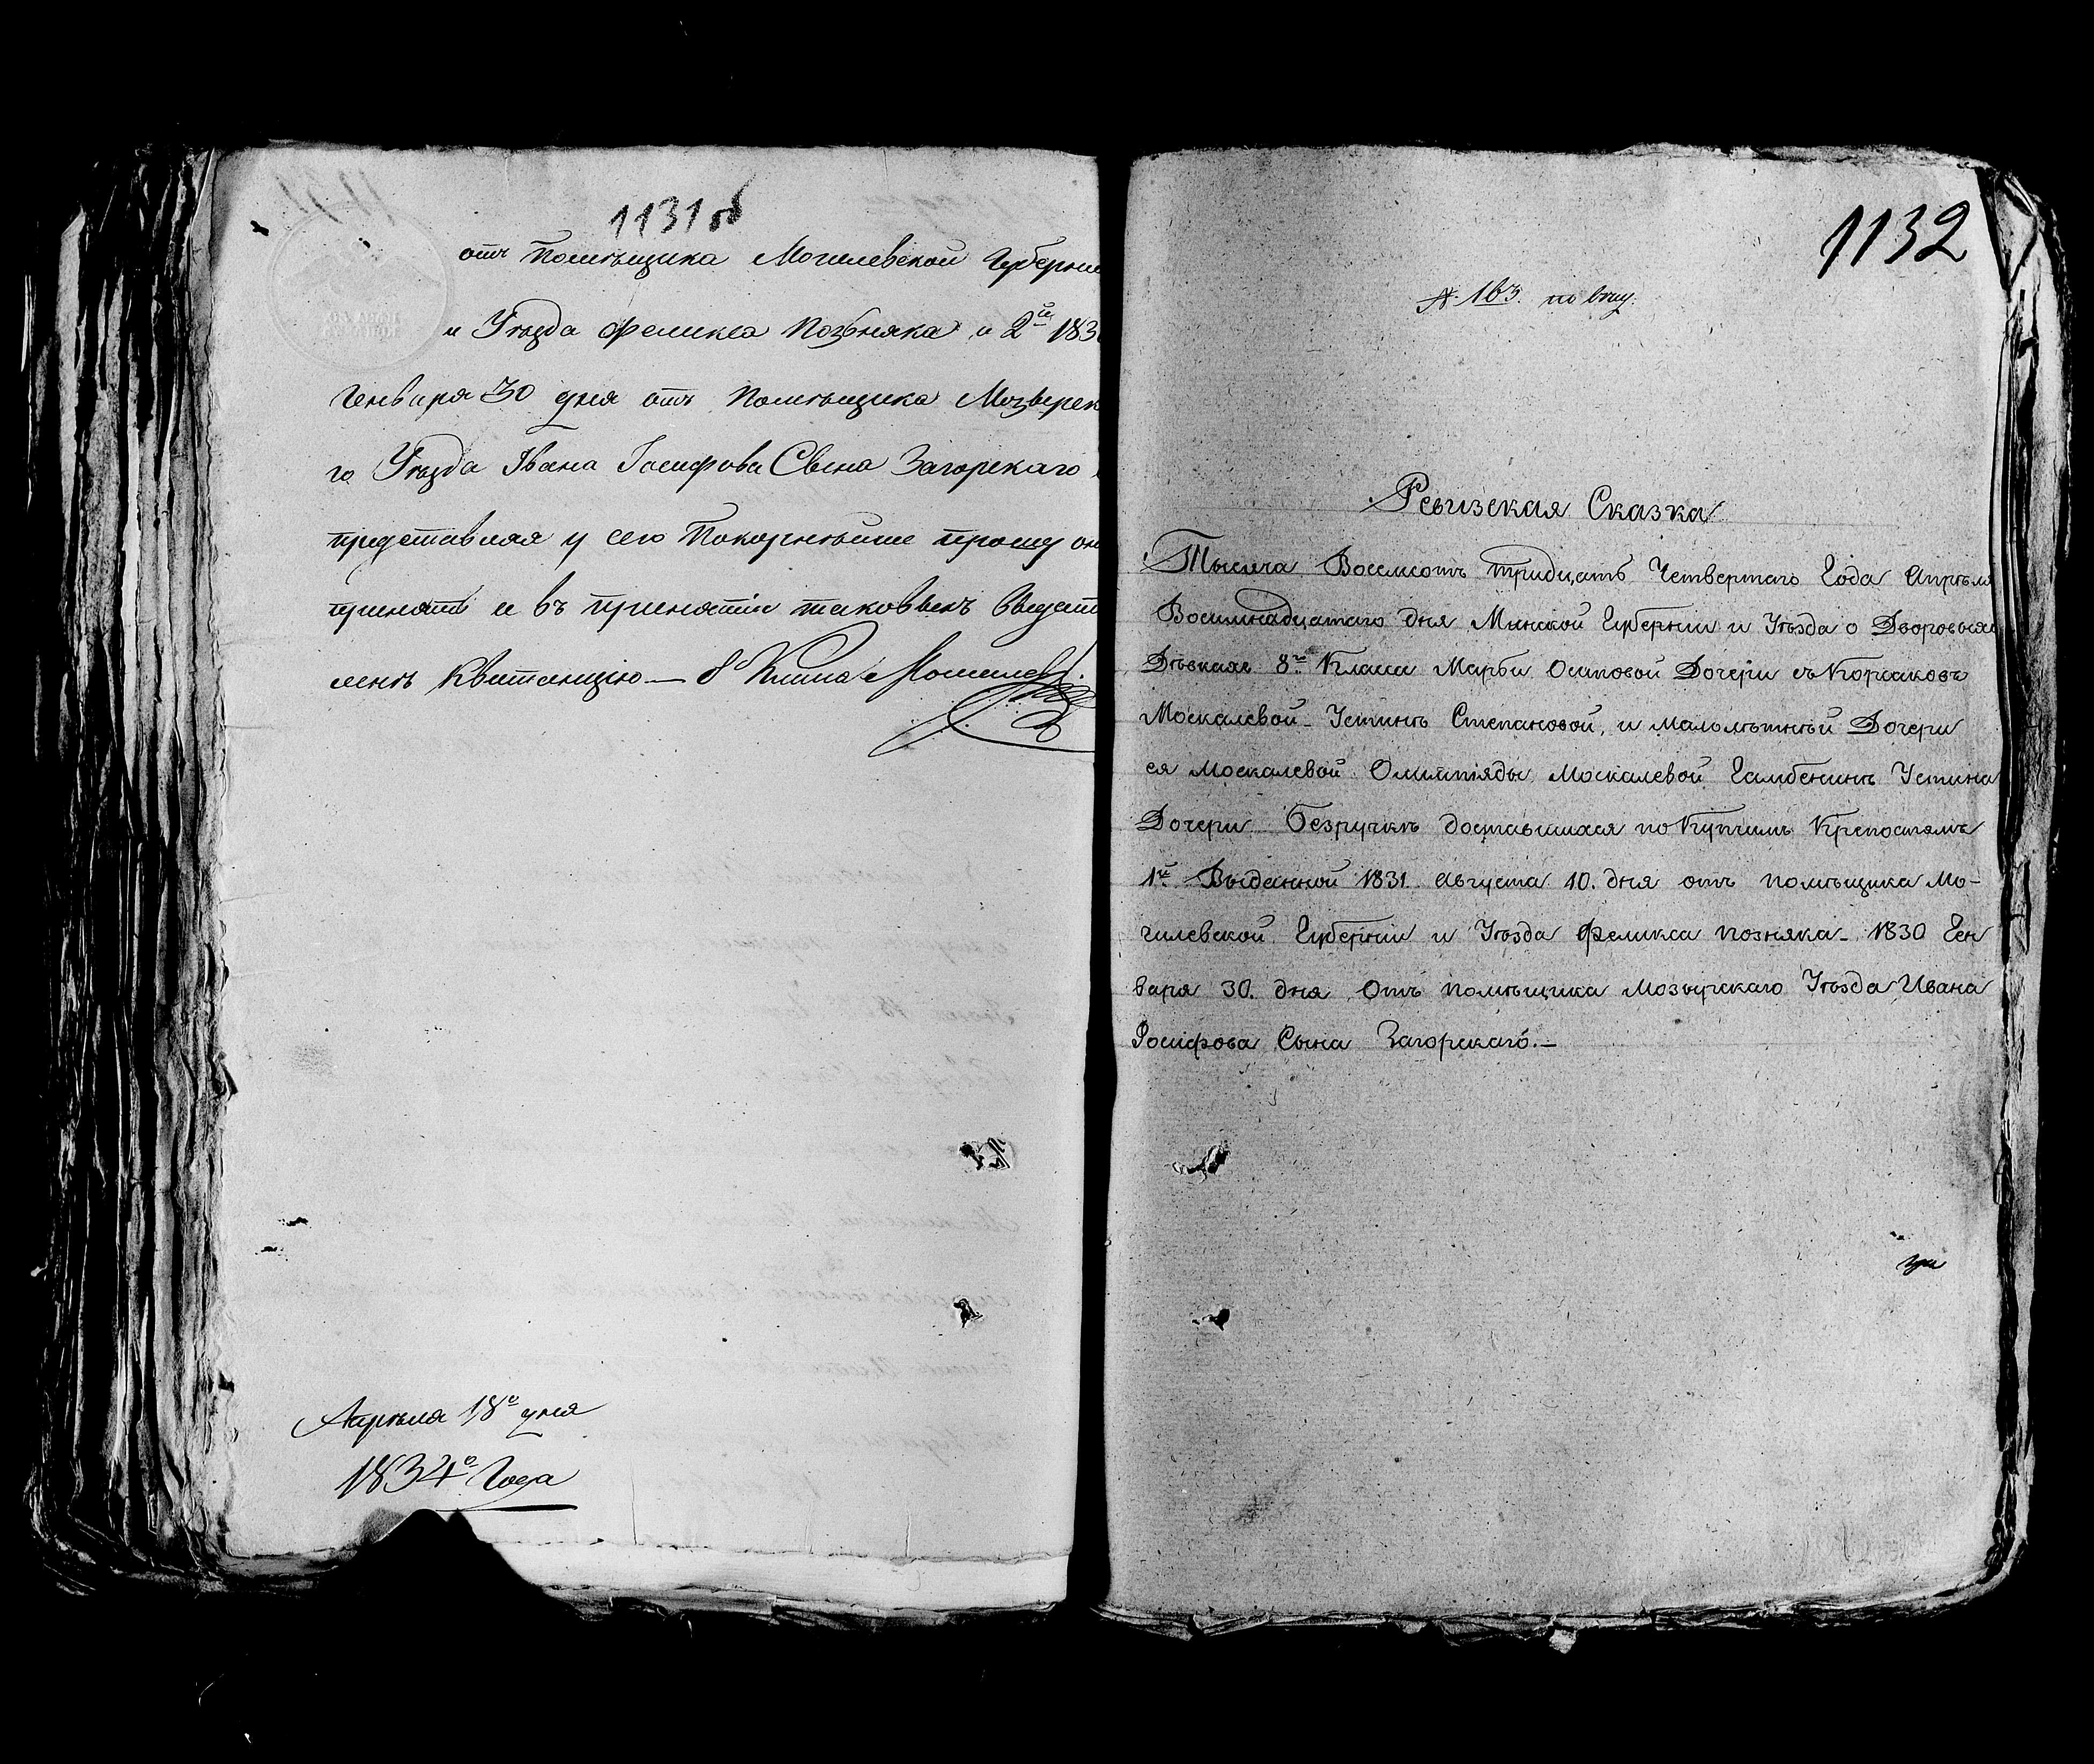 1131 об
отъ Помѣщика Могилевской Губерніи
и Уѣзда Феликса Позьняка, и 2й 183
Генваря 30 дня отъ Помѣщика Мозырск
го Уѣзда Ивана Іосифова Сына Загорскаго
представляя у сего Покорнѣйше прошу
принять и въ принятіи таковыхъ
менѣ Квитанцію — 8 Класа
Апрѣля 18º дня
1834º Года
1132
№ 163. по
Ревизская Сказка
Тысяча Восемсотъ тридцать Четвертаго Года Апрѣля
Восимнадцатаго дня Минской Губерніи и Уѣзда о Дворовыхъ
Дѣвкахъ 8го Класа Марьи Осиповой Дочери съ Корсаковъ
Москалевой Устинѣ Степановой, и малолѣтнѣй Дочери
ея Москалевой Олимпіяды Москалевой Устина
Дочери доставшихся по Купчимъ Крепостямъ
1й Выданной 1831. Августа 10. дня отъ помѣщика Мо-
гилевской Губерніи и Уѣзда Феликса позняка 1830 Ген
варя 30. дня Отъ помѣщика Мозырскаго Уѣзда Ивана
Іосифова Сына Загорскаго.—